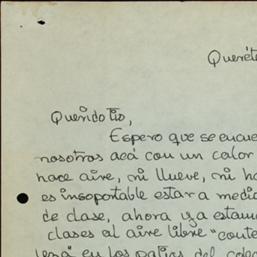 Queréta
Querido Tío,
Espero que se encue
nosotros acá con un calor
hace aire, ni llueve, ni ha
es insoportable estar a media
de clase, ahora ya estamo
clases al aire libre "conte
los patios del coleg